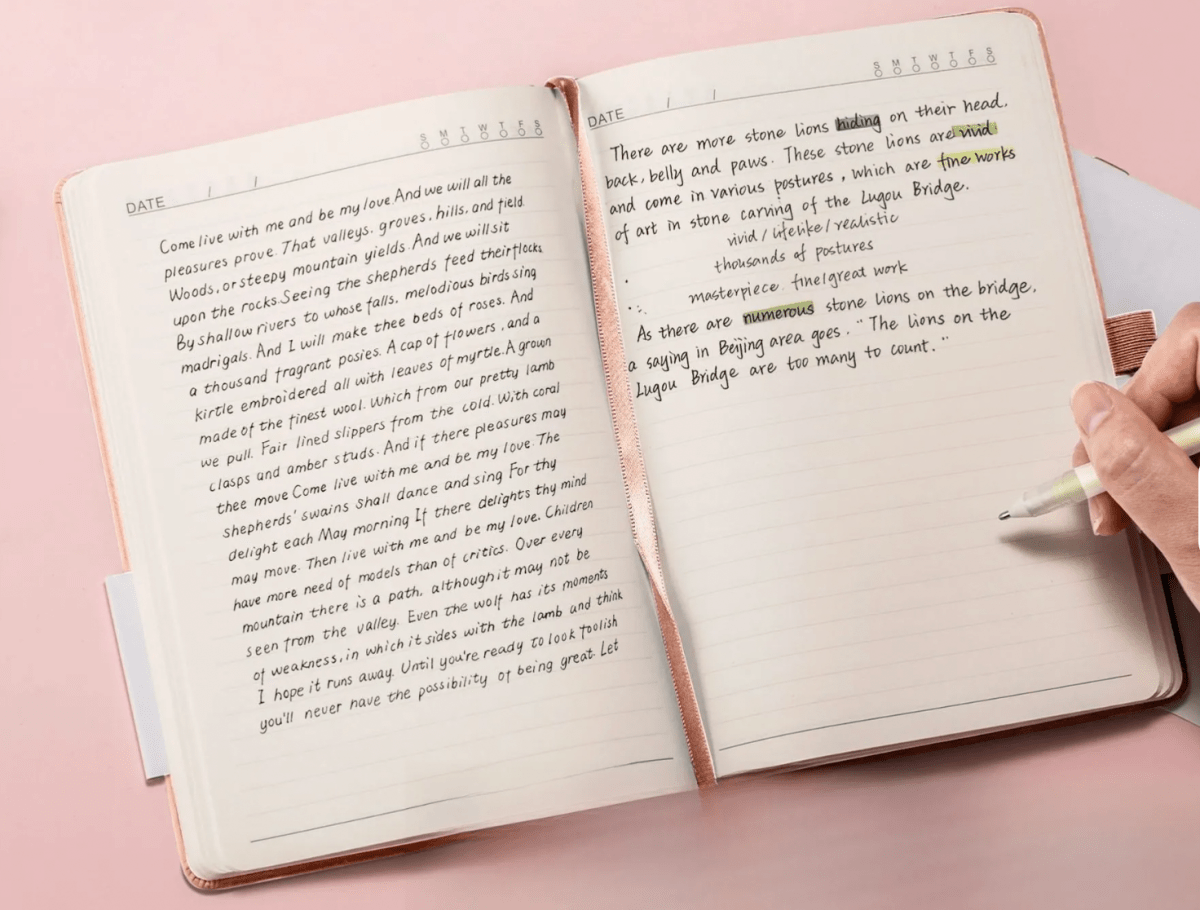 S M T W T F S
DATE / /
Come live with me and be my love And we will all the
pleasures prove. That valleys. groves. hills. and field.
Woods. or steepy mountain yields. And we will sit
upon the rocks. Seeing the shepherds feed their flocks.
By shallow rivers to whose falls. melodious birds sing
madrigals. And I will make thee beds of roses. And
a thousand fragrant posies. A cap of flowers, and a
kirtle embroidered all with leaves of myrtle. A grown
made of the finest wool. Which from our pretty lamb
we pull. Fair lined slippers from the cold. With coral
clasps and amber studs. And if there pleasures may
thee move Come live with me and be my love. The
shepherds' swains shall dance and sing For thy
delight each May morning If there delights thy mind
may move. Then live with me and be my love. Children
have more need of models than of critics. Over every
mountain there is a path. although it may not be
seen from the valley. Even the wolf has its moments
of weakness, in which it sides with the lamb and think
I hope it runs away. Until you're ready to look foolish
you'll never have the possibility of being great. Let
S M T W T F S
DATE / /
There are more stone lions hiding on their head.
back, belly and paws. These stone lions are vivid
and come in various postures, which are fine works
of art in stone carving of the Lugou Bridge.
vivid / lifelike / realistic
thousands of postures
masterpiece. fine/great work
As there are numerous stone lions on the bridge,
a saying in Beijing area goes. "The lions on the
Lugou Bridge are too many to count."